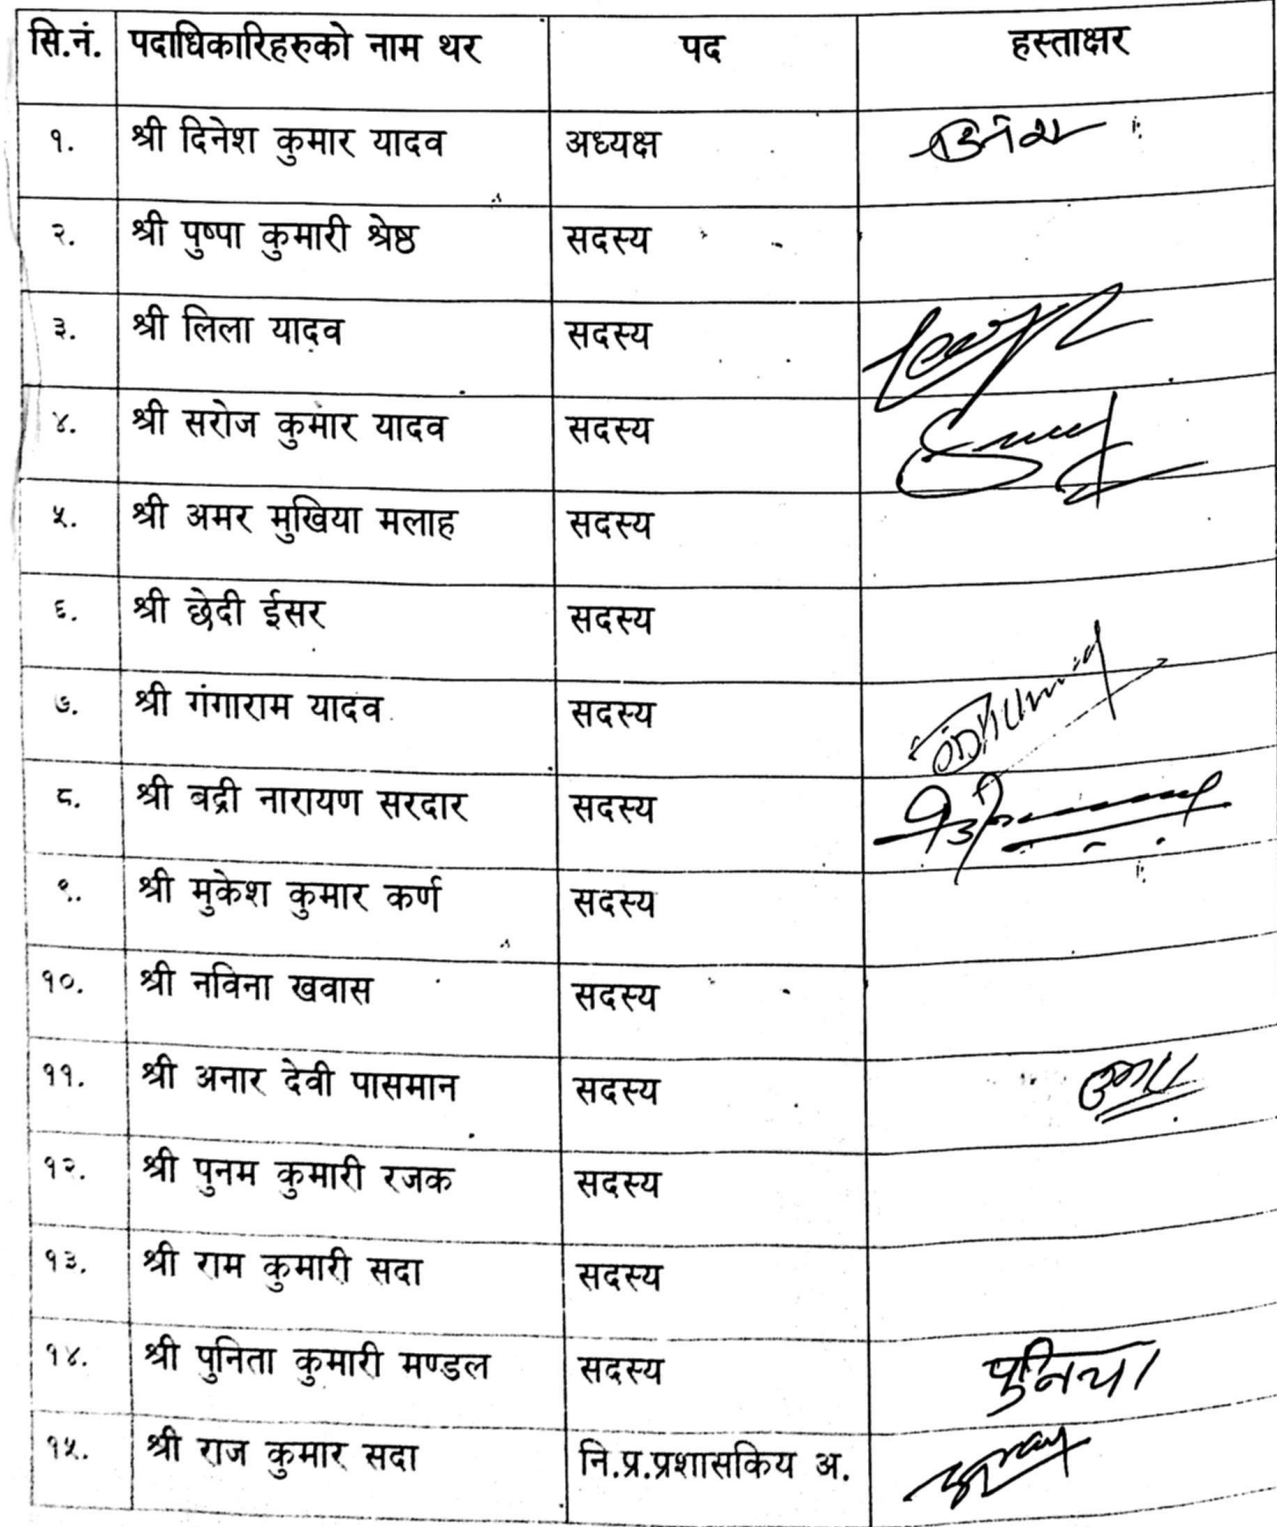 सि.नं. पदाधिकारिहरुको नाम थर पद हस्ताक्षर
१. श्री दिनेश कुमार यादव अध्यक्ष
२. श्री पुष्पा कुमारी श्रेष्ठ सदस्य
३. श्री लिला यादव सदस्य
४. श्री सरोज कुमार यादव सदस्य
५. श्री अमर मुखिया मलाह सदस्य
६. श्री छेदी ईसर सदस्य
७. श्री गंगाराम यादव सदस्य
८. श्री वद्री नारायण सरदार सदस्य
९. श्री मुकेश कुमार कर्ण सदस्य
१०. श्री नविना खवास सदस्य
११. श्री अनार देवी पासमान सदस्य
१२. श्री पुनम कुमारी रजक सदस्य
१३. श्री राम कुमारी सदा सदस्य
१४. श्री पुनिता कुमारी मण्डल सदस्य
१५. श्री राज कुमार सदा नि.प्र.प्रशासकिय अ.